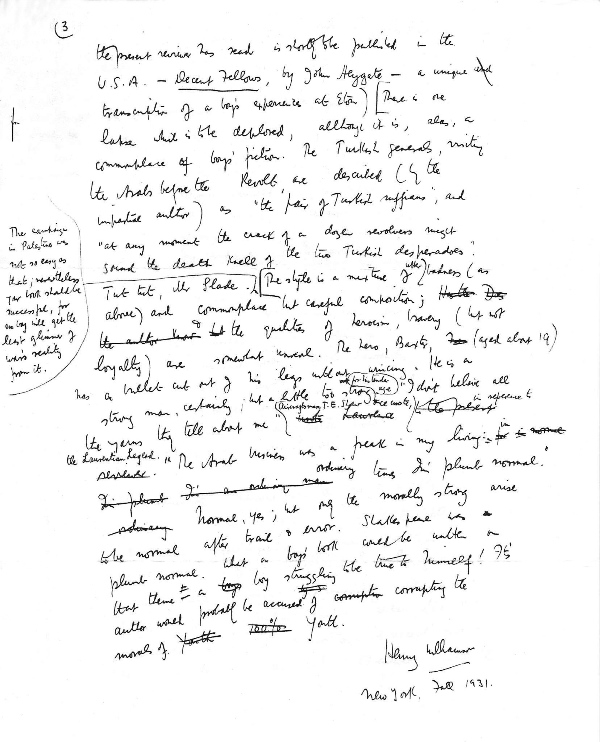 3
the present reviewer has read is shortly to be published in the
U.S.A. — Decent Fellows, by John Heygate — a unique and
transcription of a boy's experiences at Eton) [There is one
lapse that is to be deplored, although it is, alas, a
commonplace of boys' fiction. The Turkish generals, visiting
the Arabs before the Revolt, are described (by the
impartial author) as "the pair of Turkish ruffians", and
"at any moment the crack of a dozen revolvers might
sound the death knell of the two Turkish desperadoes".
Tut tut, Mr Slade. [The style is a mixture of utter badness (as
above) and commonplace but careful construction;
the author knows but the qualities of heroism, bravery (but not
loyalty) are somewhat unreal. The hero, Baxter, (aged about 19)
has a bullet cut out of his leg without wincing. He is a
strong man, certainly; but a little too strong for his tender age. "I don't believe all
the yarns they tell about me" (Aircraftman T.E. Shaw wrote, in reference to
the Laurentian Legend. "The Arab business was a freak in my living: in
ordinary times I'm plumb normal."
Normal, yes; but only the morally strong arise
to be normal after trial & error. Shakespeare was
plumb normal. What a boy's book could be written on
that theme — a boy struggling to be true to himself! Its
author would probably be accused of corruption corrupting the
morals of Youth 100% Youth.
Henry Williamson
New York. Fall 1931.
The campaign
in Palestine was
not so easy as
that; nevertheless
the book should be
successful, for
no boy will get the
least glimmer of
war's reality
from it.